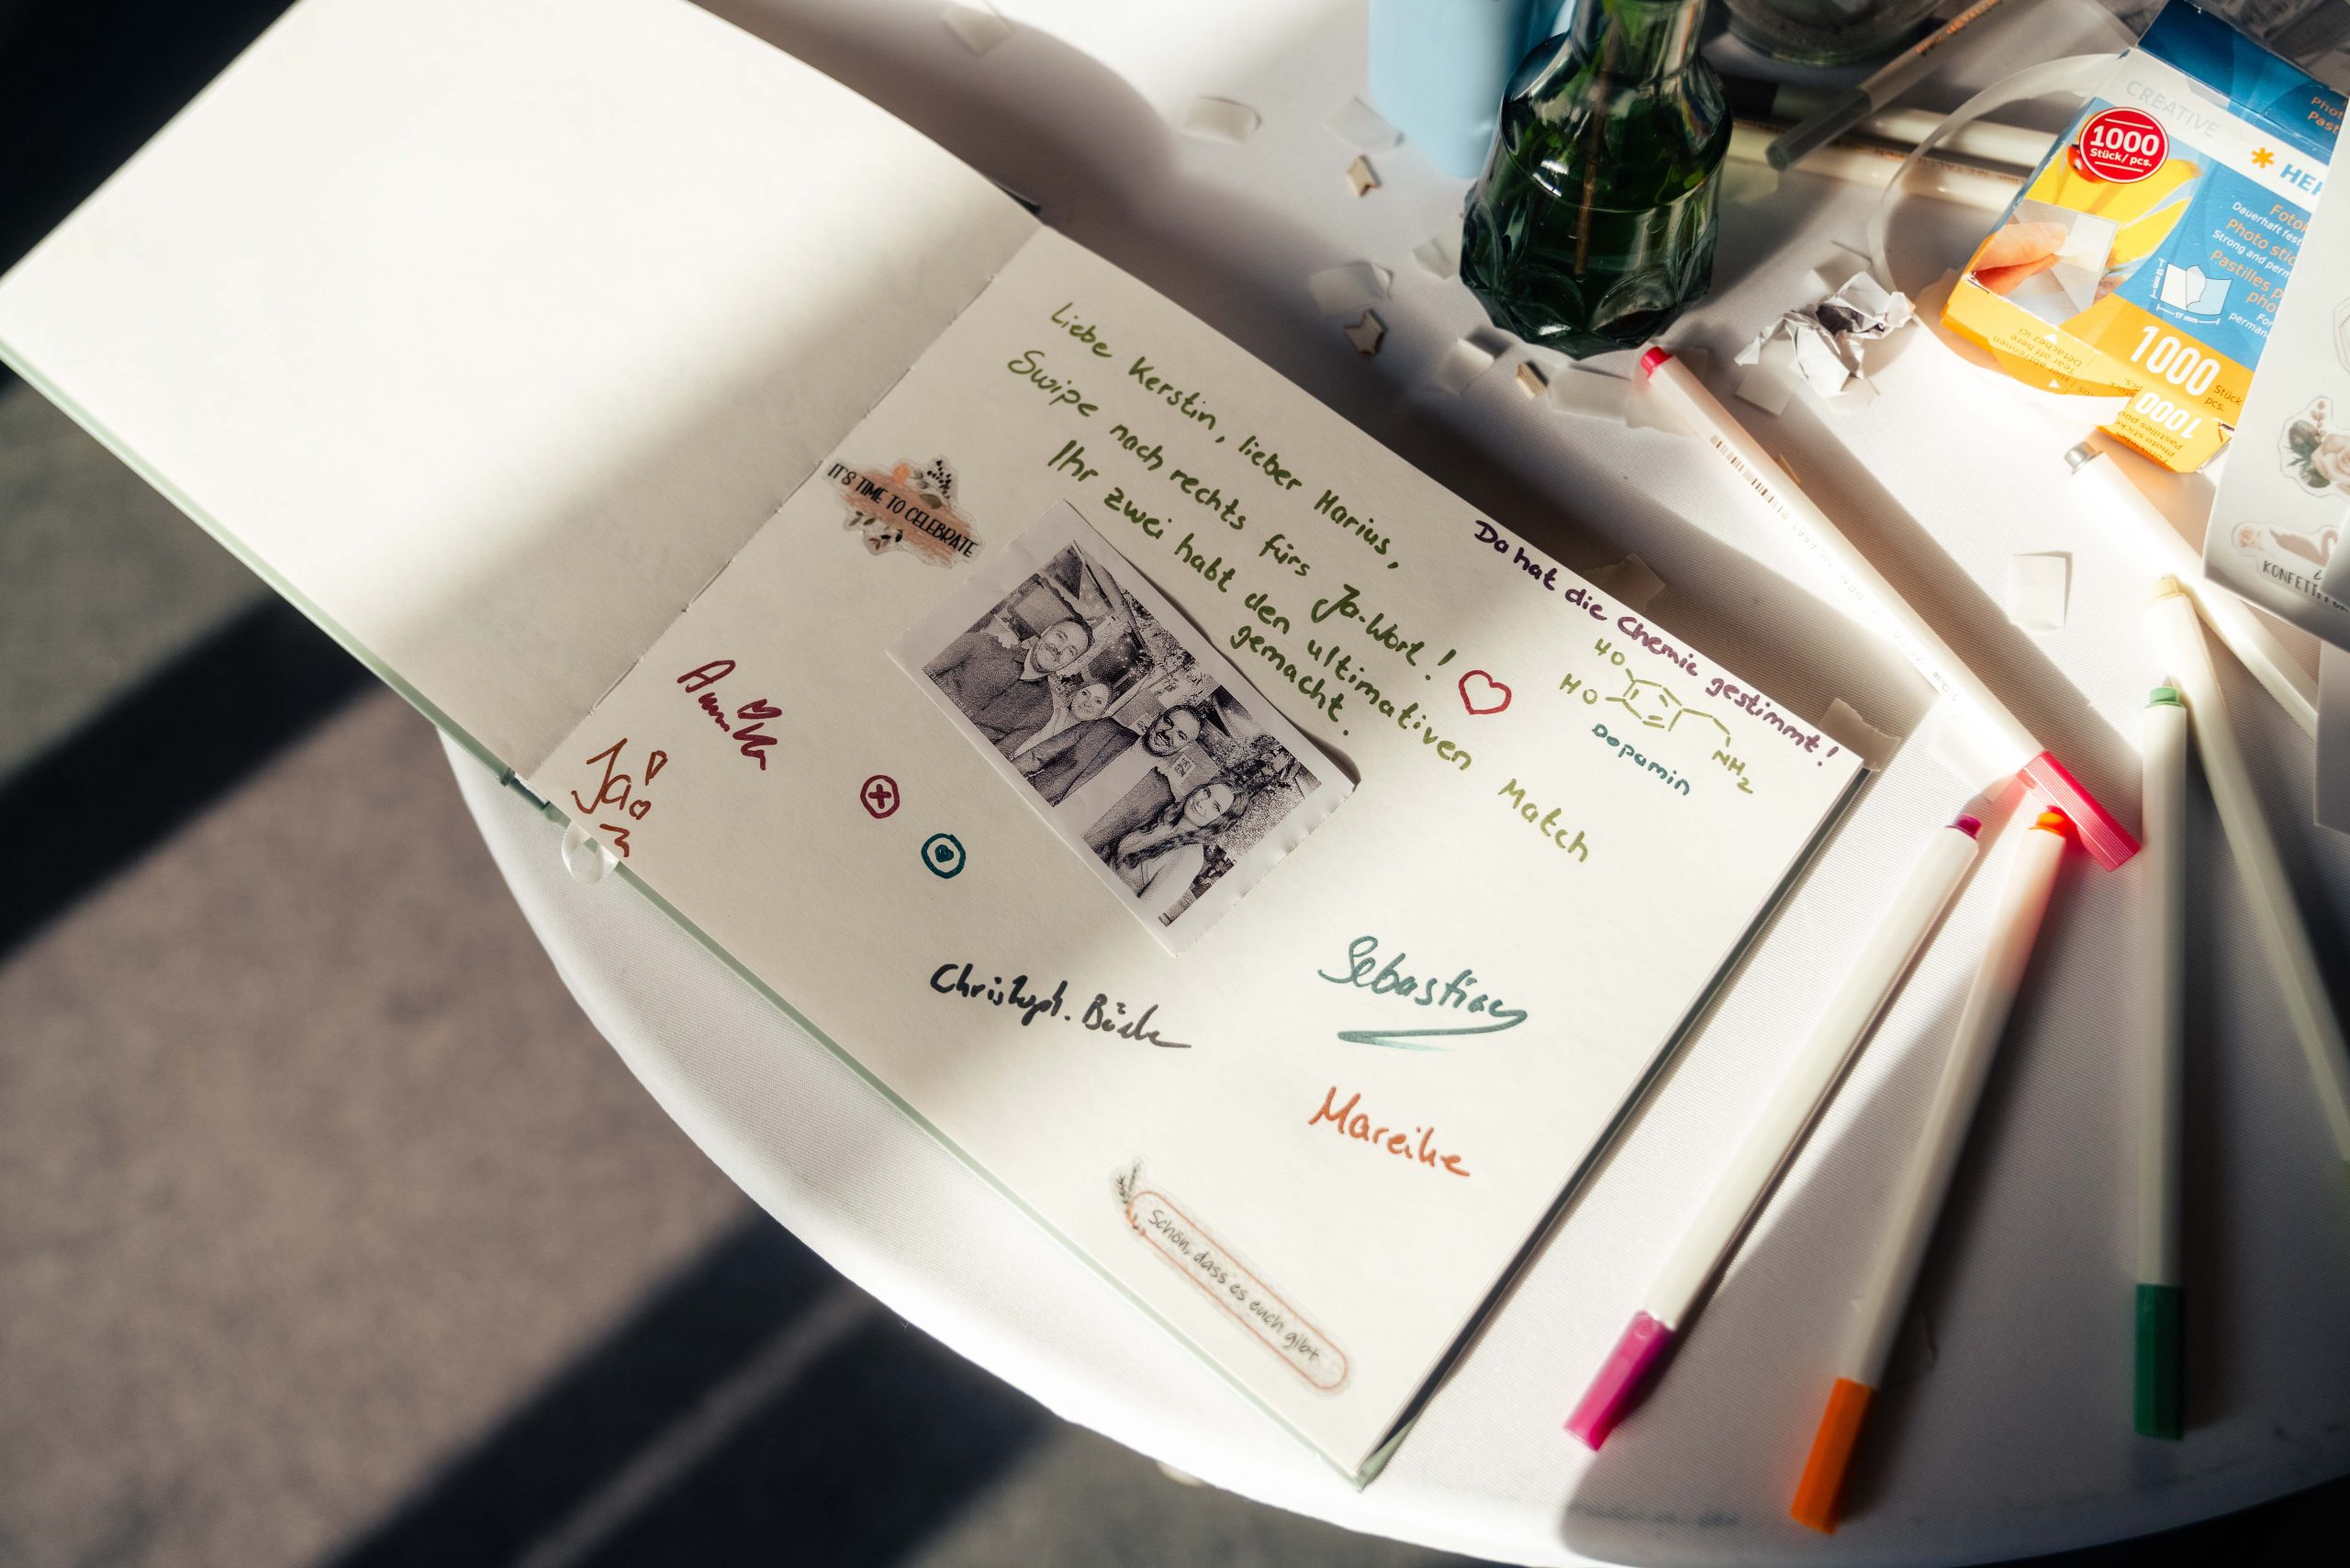 Liebe Kerstin, lieber Marius,
Swipe nach rechts fürs Ja-Wort!
Ihr zwei habt den ultimativen Match
gemacht.
Da hat die Chemie gestimmt!
HO
HO
NH2
Dopamin
IT'S TIME TO CELEBRATE
Ja!
Christoph.
Sebastian
Mareike
Schön, dass es euch gibt
CREATIVE
1000
Stück/pcs.
HER
Dauerhaft
Photo
Strong and
Pastilles
1000
Stück
pcs.
1000
Detacher ici
Tear off here
KONFETTI